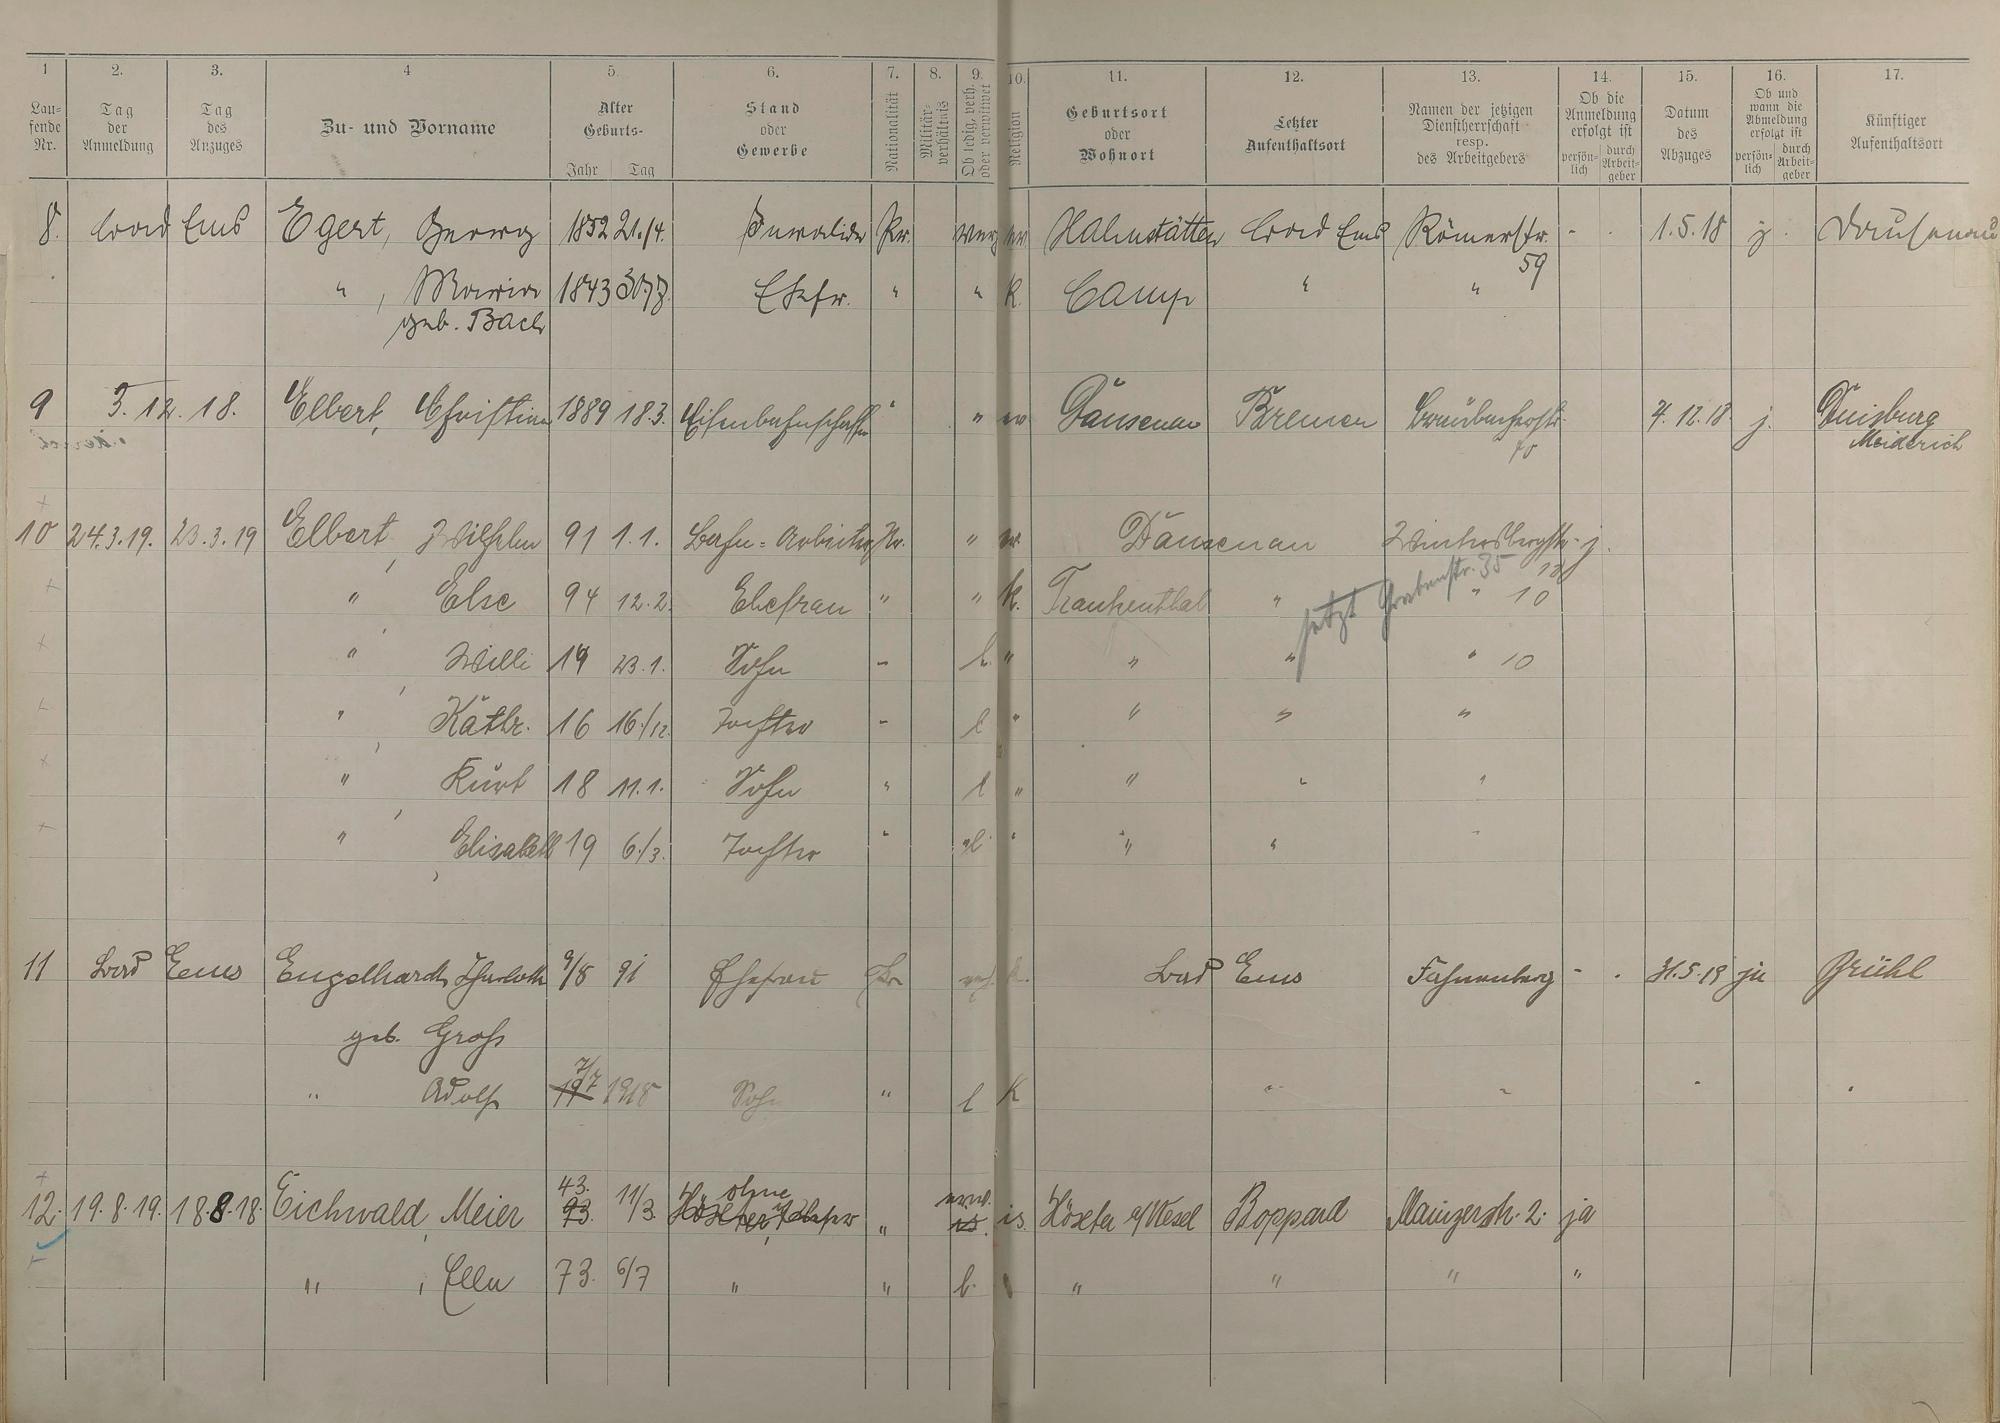 1 2. 3. 4 5. 6. 7. 8. 9. 10. 11. 12. 13. 14. 15. 16. 17.
Laufende Nr. Tag der Anmeldung Tag des Anzuges Zu- und Vorname Alter Geburts- Jahr Tag Stand oder Gewerbe Nationalität Militärverhältnis Ob ledig, verh. oder verwitwet Religion Geburtsort oder Wohnort Letzter Aufenthaltsort Namen der jetzigen Dienstherrschaft resp. des Arbeitgebers Ob die Anmeldung erfolgt ist persönlich durch Arbeitgeber Datum des Abzuges Ob und wann die Abmeldung erfolgt ist persönlich durch Arbeitgeber Künftiger Aufenthaltsort
8. Bad Ems Egert, Georg 1852 21./4. Invalide Pr. ev Hahnstätten Bad Ems Römerstr. 59 - . 1.5.18 j. Dausenau
" , Maria 1843 Ehefr. " " k. Camp " "
geb. Bach
9 3.12.18. Elbert, Christian 1889 18.3. Eisenbahnschaffn " " ev Dausenau Bremen 70 4.12.18 j. Duisburg
Meiderich
10 24.3.19. 23.3.19 Elbert, Wilhelm 91 1.1. Bahn-Arbeiter Pr. " ev. Dausenau Wintersbergstr. 10 j.
" Else 94 12.2. Ehefrau " " k. Frankenthal " " 10
jetzt Grabenstr. 35
" , Willi 14 23.1. Sohn " l. " " " " 10
" , Käthr. 16 16./12. Tochter " l " " " "
" , Kurt 18 11.1. Sohn " l " " " "
" , Elisabeth 19 6./3. Tochter " l " " "
11 Bad Ems Engelhardt, Charlotte 9/8 91 Ehefrau Pr verh. k. Bad Ems Fahnenberg - . 31.5.19 ja Brühl
geb. Groß
" Adolf 7/7 1918 Sohn " l K " " " "
12. 19.8.19. 18.8.18. Eichwald, Meier 43. 11/3. ohne " verw. is. Höxter a/Wesel Boppard Mainzerstr. 2. ja
" , Ella 73. 6/7 " " l. " " " " "